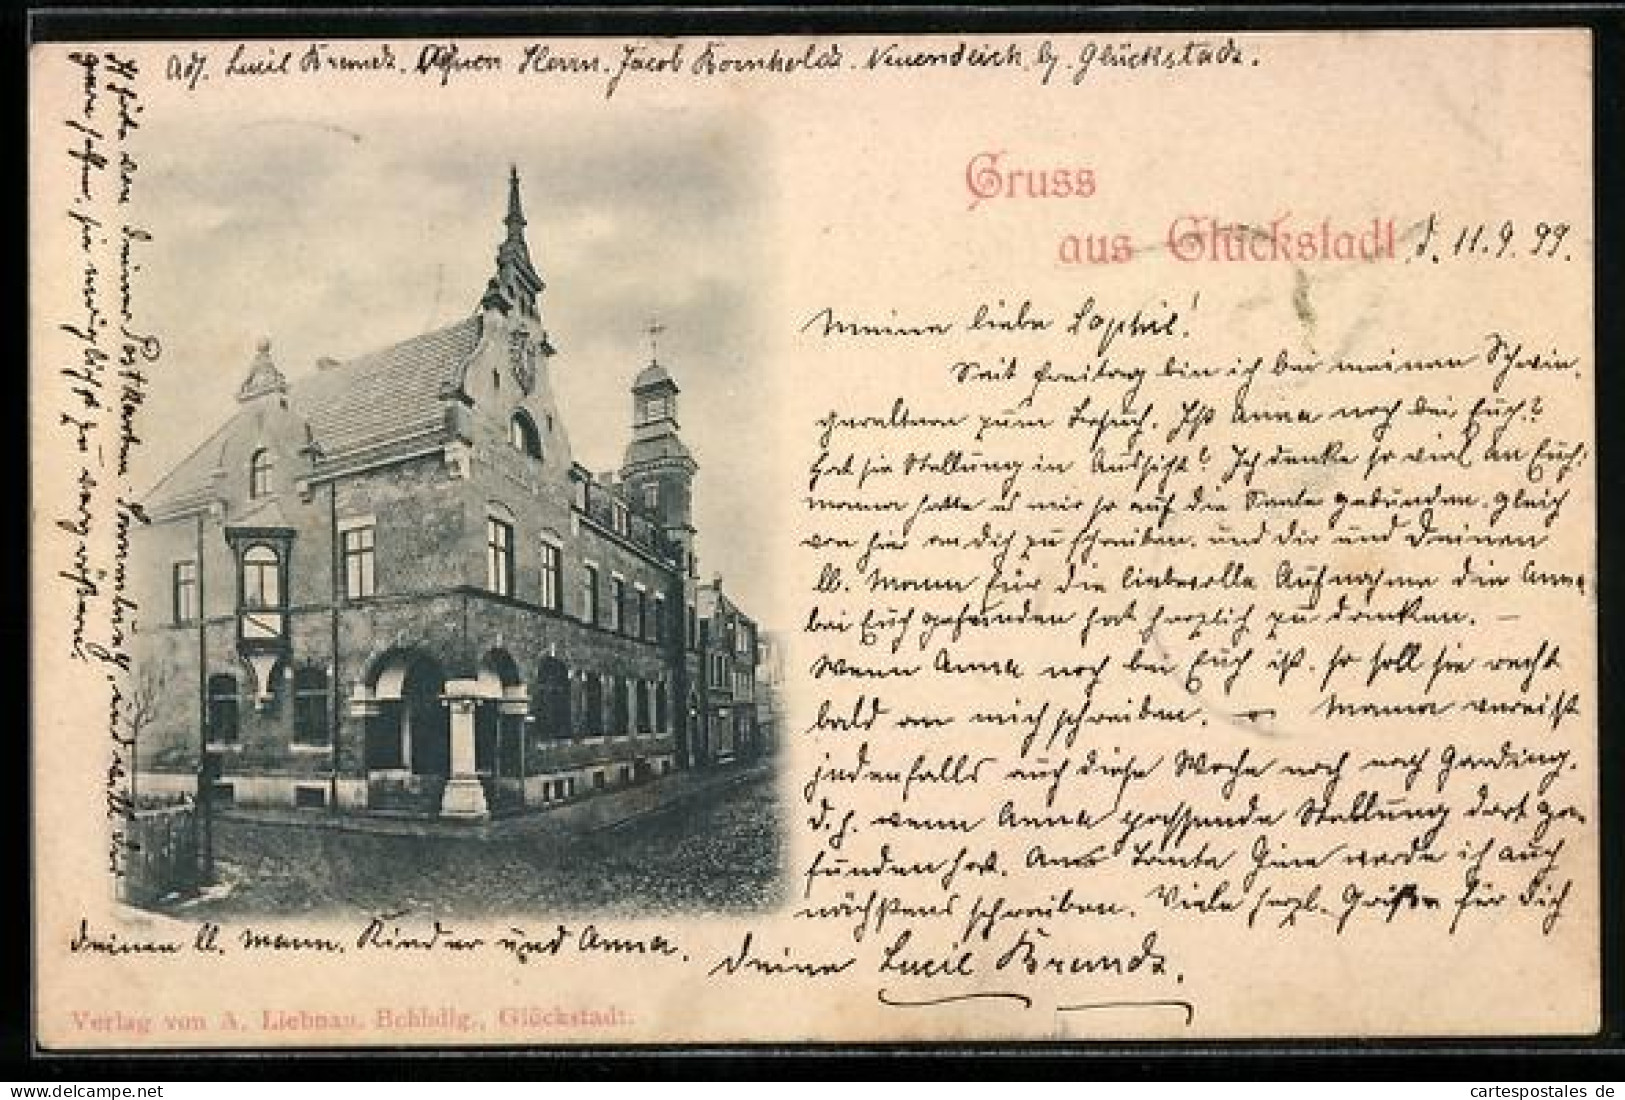 Adr. Lucil Brandt. Herrn. Jacob Kornholdt. Neuendeich b. Glückstadt.
Gruss
aus Glückstadt
d. 11.9.99.
Meine liebe Sophie!
Seit Freitag bin ich bei meinen Schwie-
gereltern zum Besuch. Ist Anna noch bei Euch?
hat sie Stellung in Aussicht? Ich denke so viel an Euch!
Mama hatte es mir so auf die Seele gebunden. gleich
von hier an Dich zu schreiben. und Dir und Deinen
lb. Mann für die liebevolle Aufnahme die Anna
bei Euch gefunden hat herzlich zu danken. —
Wenn Anna noch bei Euch ist. so soll sie recht
bald an mich schreiben. — Mama verreist
jedenfalls auch diese Woche noch nach Garding.
d. h. wenn Anna passende Stellung dort ge-
funden hat. An Tante Gine werde ich auch
nächstens schreiben. Viele herzl. Grüße für Dich
Deinen lb. Mann. Kinder und Anna. Deine Lucil Brandt.
von Deiner Postkarten Sammlung, und will
gerne helfen. sie möglichst zu vergrößern.
Verlag von A. Liebnau, Bchhdlg., Glückstadt.
cartespostales de